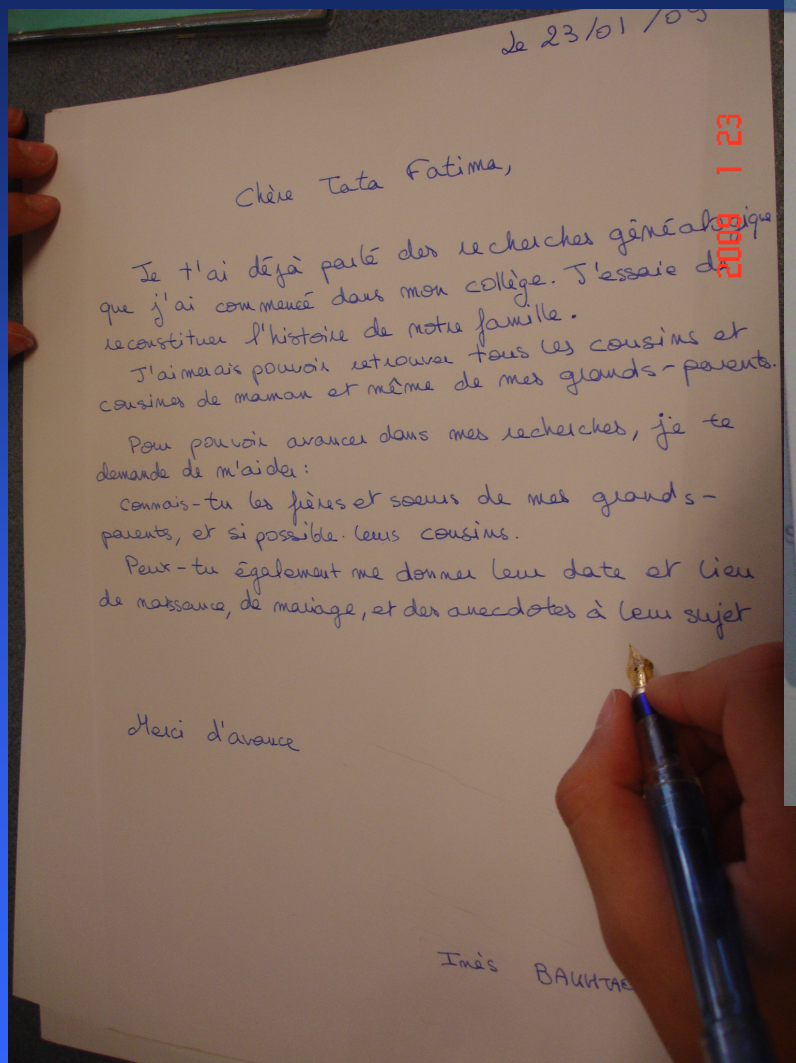 Le 23/01/09
2009 1 23
Chère Tata Fatima,
Je t'ai déjà parlé des recherches généalogique
que j'ai commencé dans mon collège. J'essaie de
reconstituer l'histoire de notre famille.
J'aimerais pouvoir retrouver tous les cousins et
cousines de maman et même de mes grands-parents.
Pour pouvoir avancer dans mes recherches, je te
demande de m'aider:
connais-tu les frères et soeurs de mes grands-
parents, et si possible. leurs cousins.
Peux-tu également me donner leur date et lieu
de naissance, de mariage, et des anecdotes à leur sujet
Merci d'avance
Inès